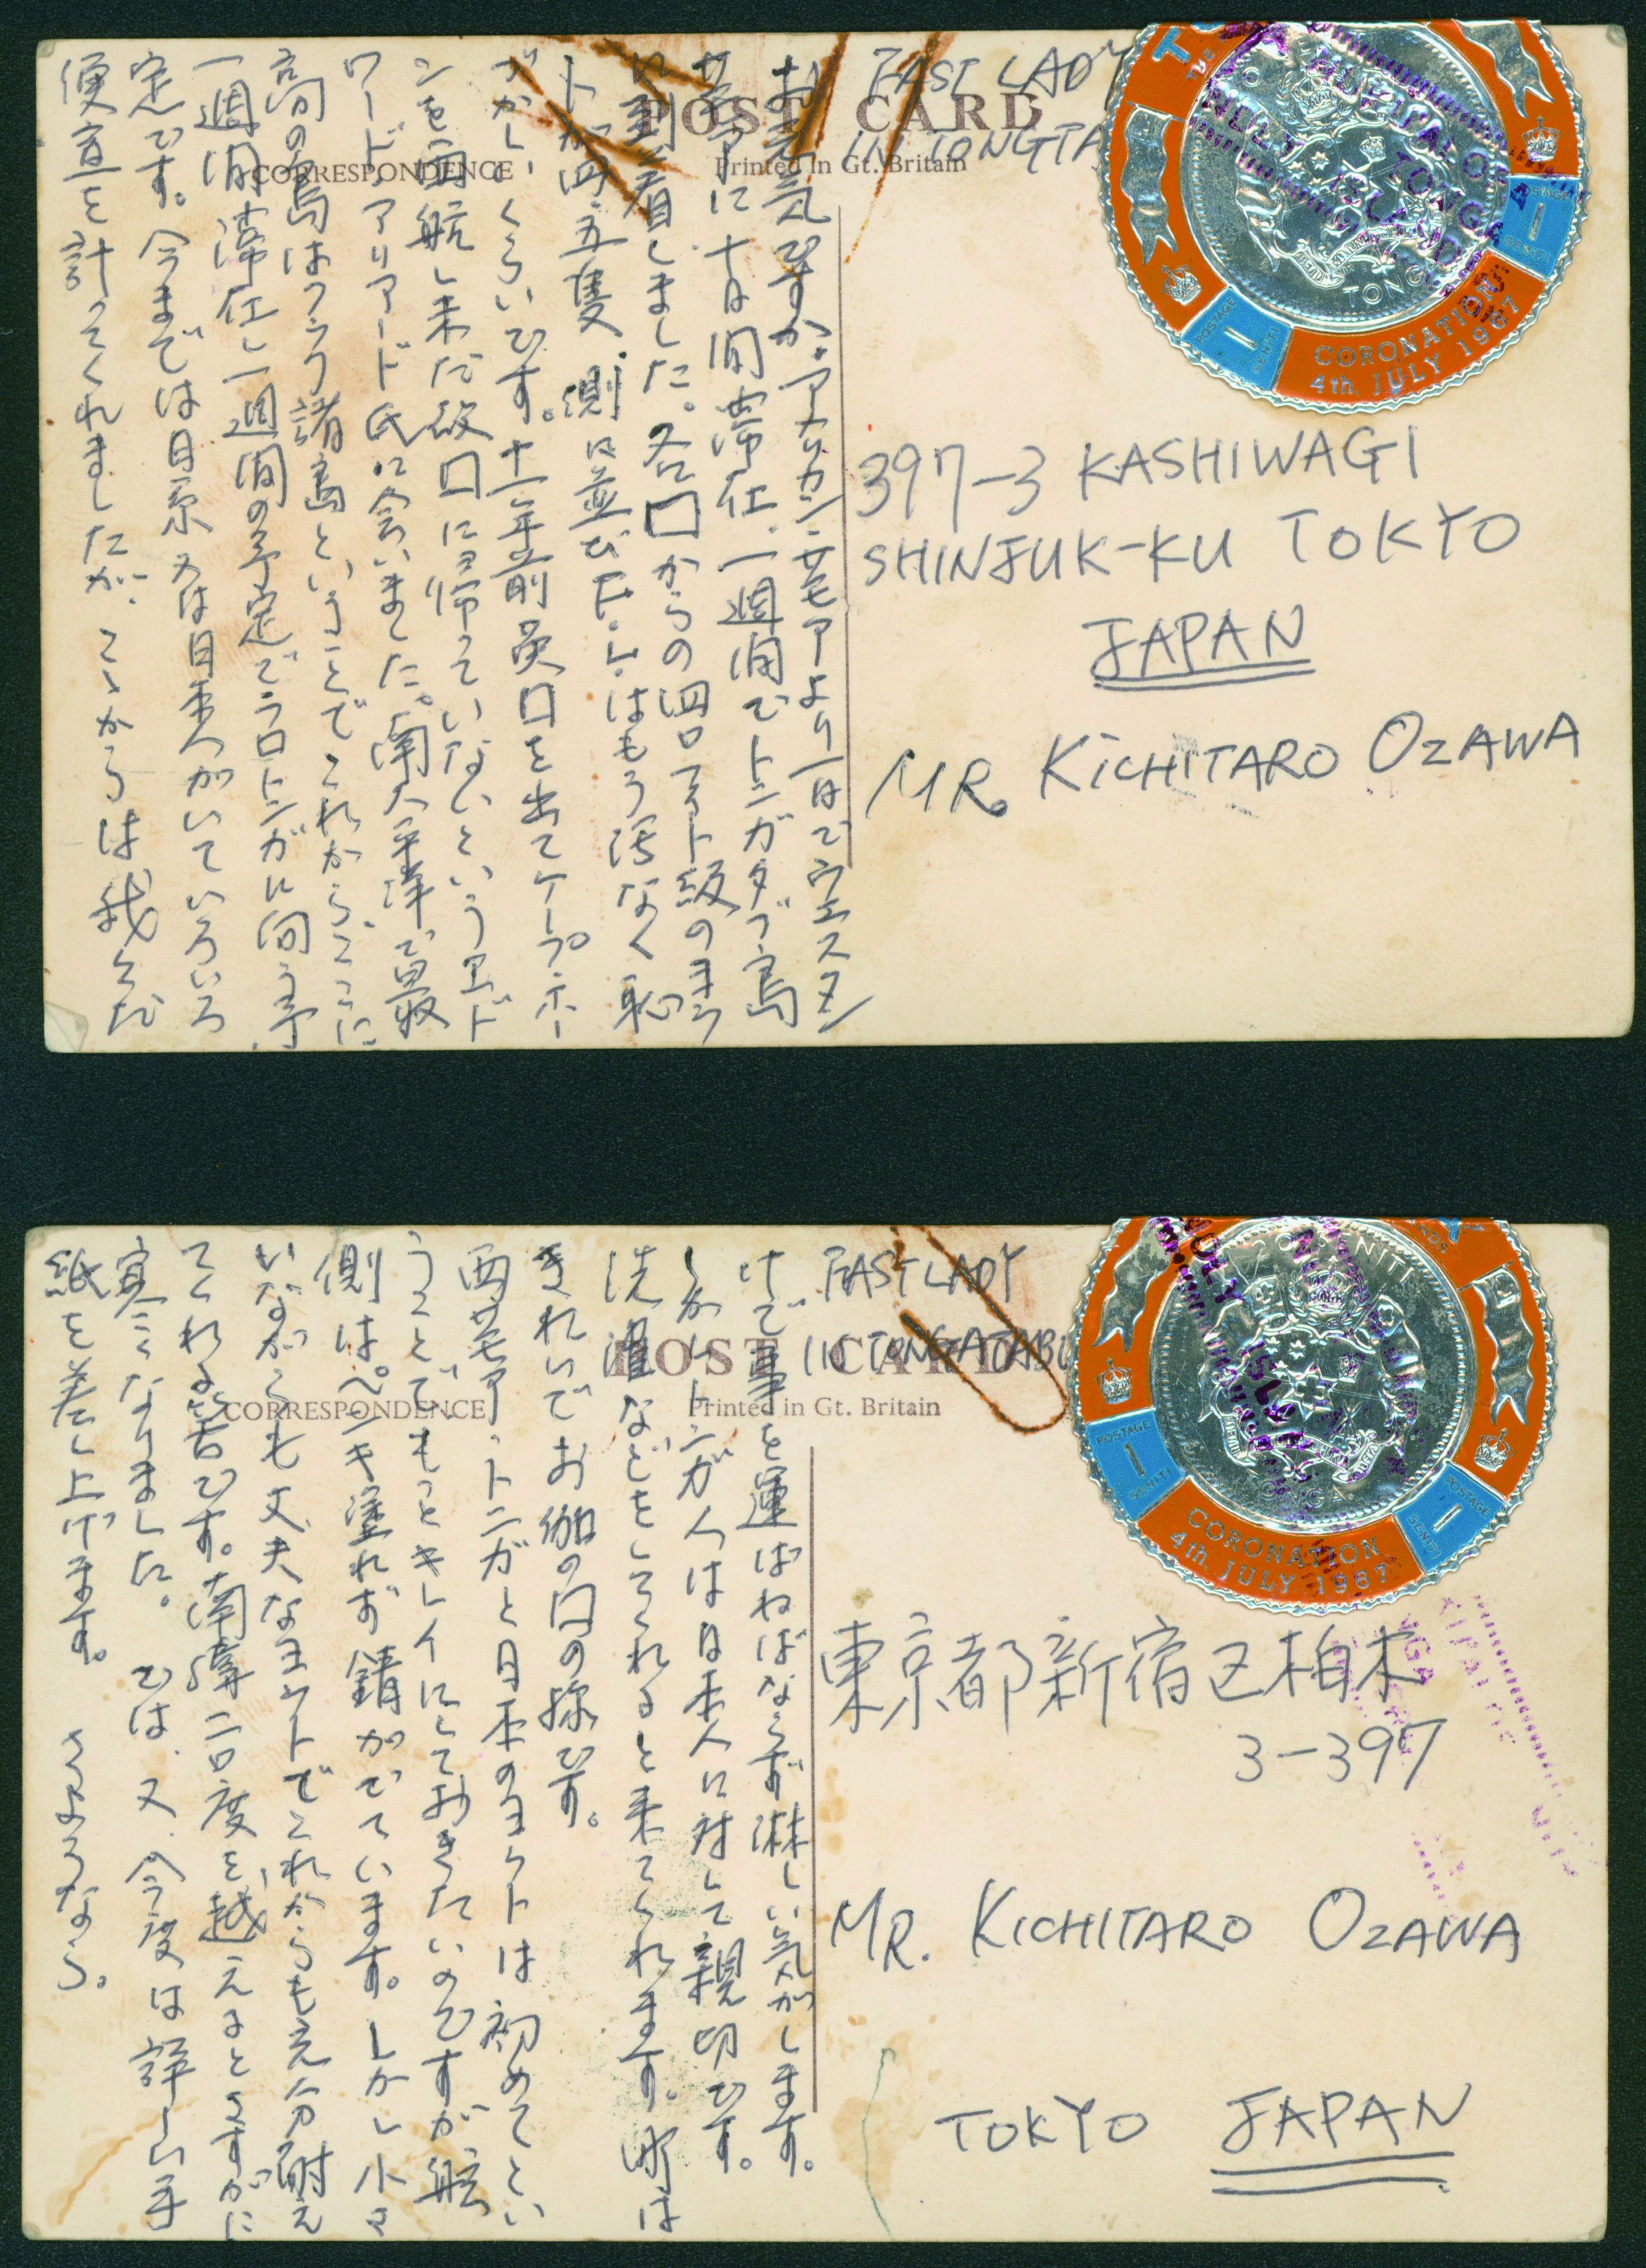 POST CARD
CORRESPONDENCE
Printed in Gt. Britain
FAST LADY
IN TONGTA
お元気ですか、アメリカン・サモアより一日でウエスタン
サモアに十日間滞在、一週間でトンガタブ島
に到着しました。各国からの四
トが四、五隻、側に並び下・しはもう活なく恥
ずかしいくらいです。十一年前英国を出てケープホー
ンを西航し未だ故国に帰っていないというエド
ワード・アリアード氏に会いました。南太平洋で最
高の島はクック諸島ということでこれから、ここに
一週間滞在し一週間の予定でラロトンガに向う予
定です。今までは日系又は日本人がいていろいろ
便宜を計ってくれましたが、こゝからは我々だ
CORONATION
4th. JULY 1967
TONGA
POSTAGE
1
SENITI
POSTAGE
1
SENITI
397-3 KASHIWAGI
SHINJUK-KU TOKYO
JAPAN
MR. KICHITARO OZAWA
POST CARD
CORRESPONDENCE
Printed in Gt. Britain
FAST LADY
IN TONGATABU
けで事を運ばねばならず淋しい気がします。
しかしトンガ人は日本人に対して親切です。
洗濯などをしてくれると来てくれます。町は
きれいでお伽の国の様です。
西サモア、トンガと日本のヨットは初めてとい
うことでもっとキレイにしておきたいのですが舷
側はペンキ塗れず錆がでています。しかし小さ
いながらも丈夫なヨットでこれからも充分耐え
てくれる筈です。南緯二〇度を越えるとさすがに
寒くなりました。では、又、今度は詳しい手
紙を差し上げます。 さようなら。
CORONATION
4th. JULY 1967
POSTAGE
1
SENITI
POSTAGE
1
SENITI
東京都新宿区柏木
3-397
MR. KICHITARO OZAWA
TOKYO JAPAN